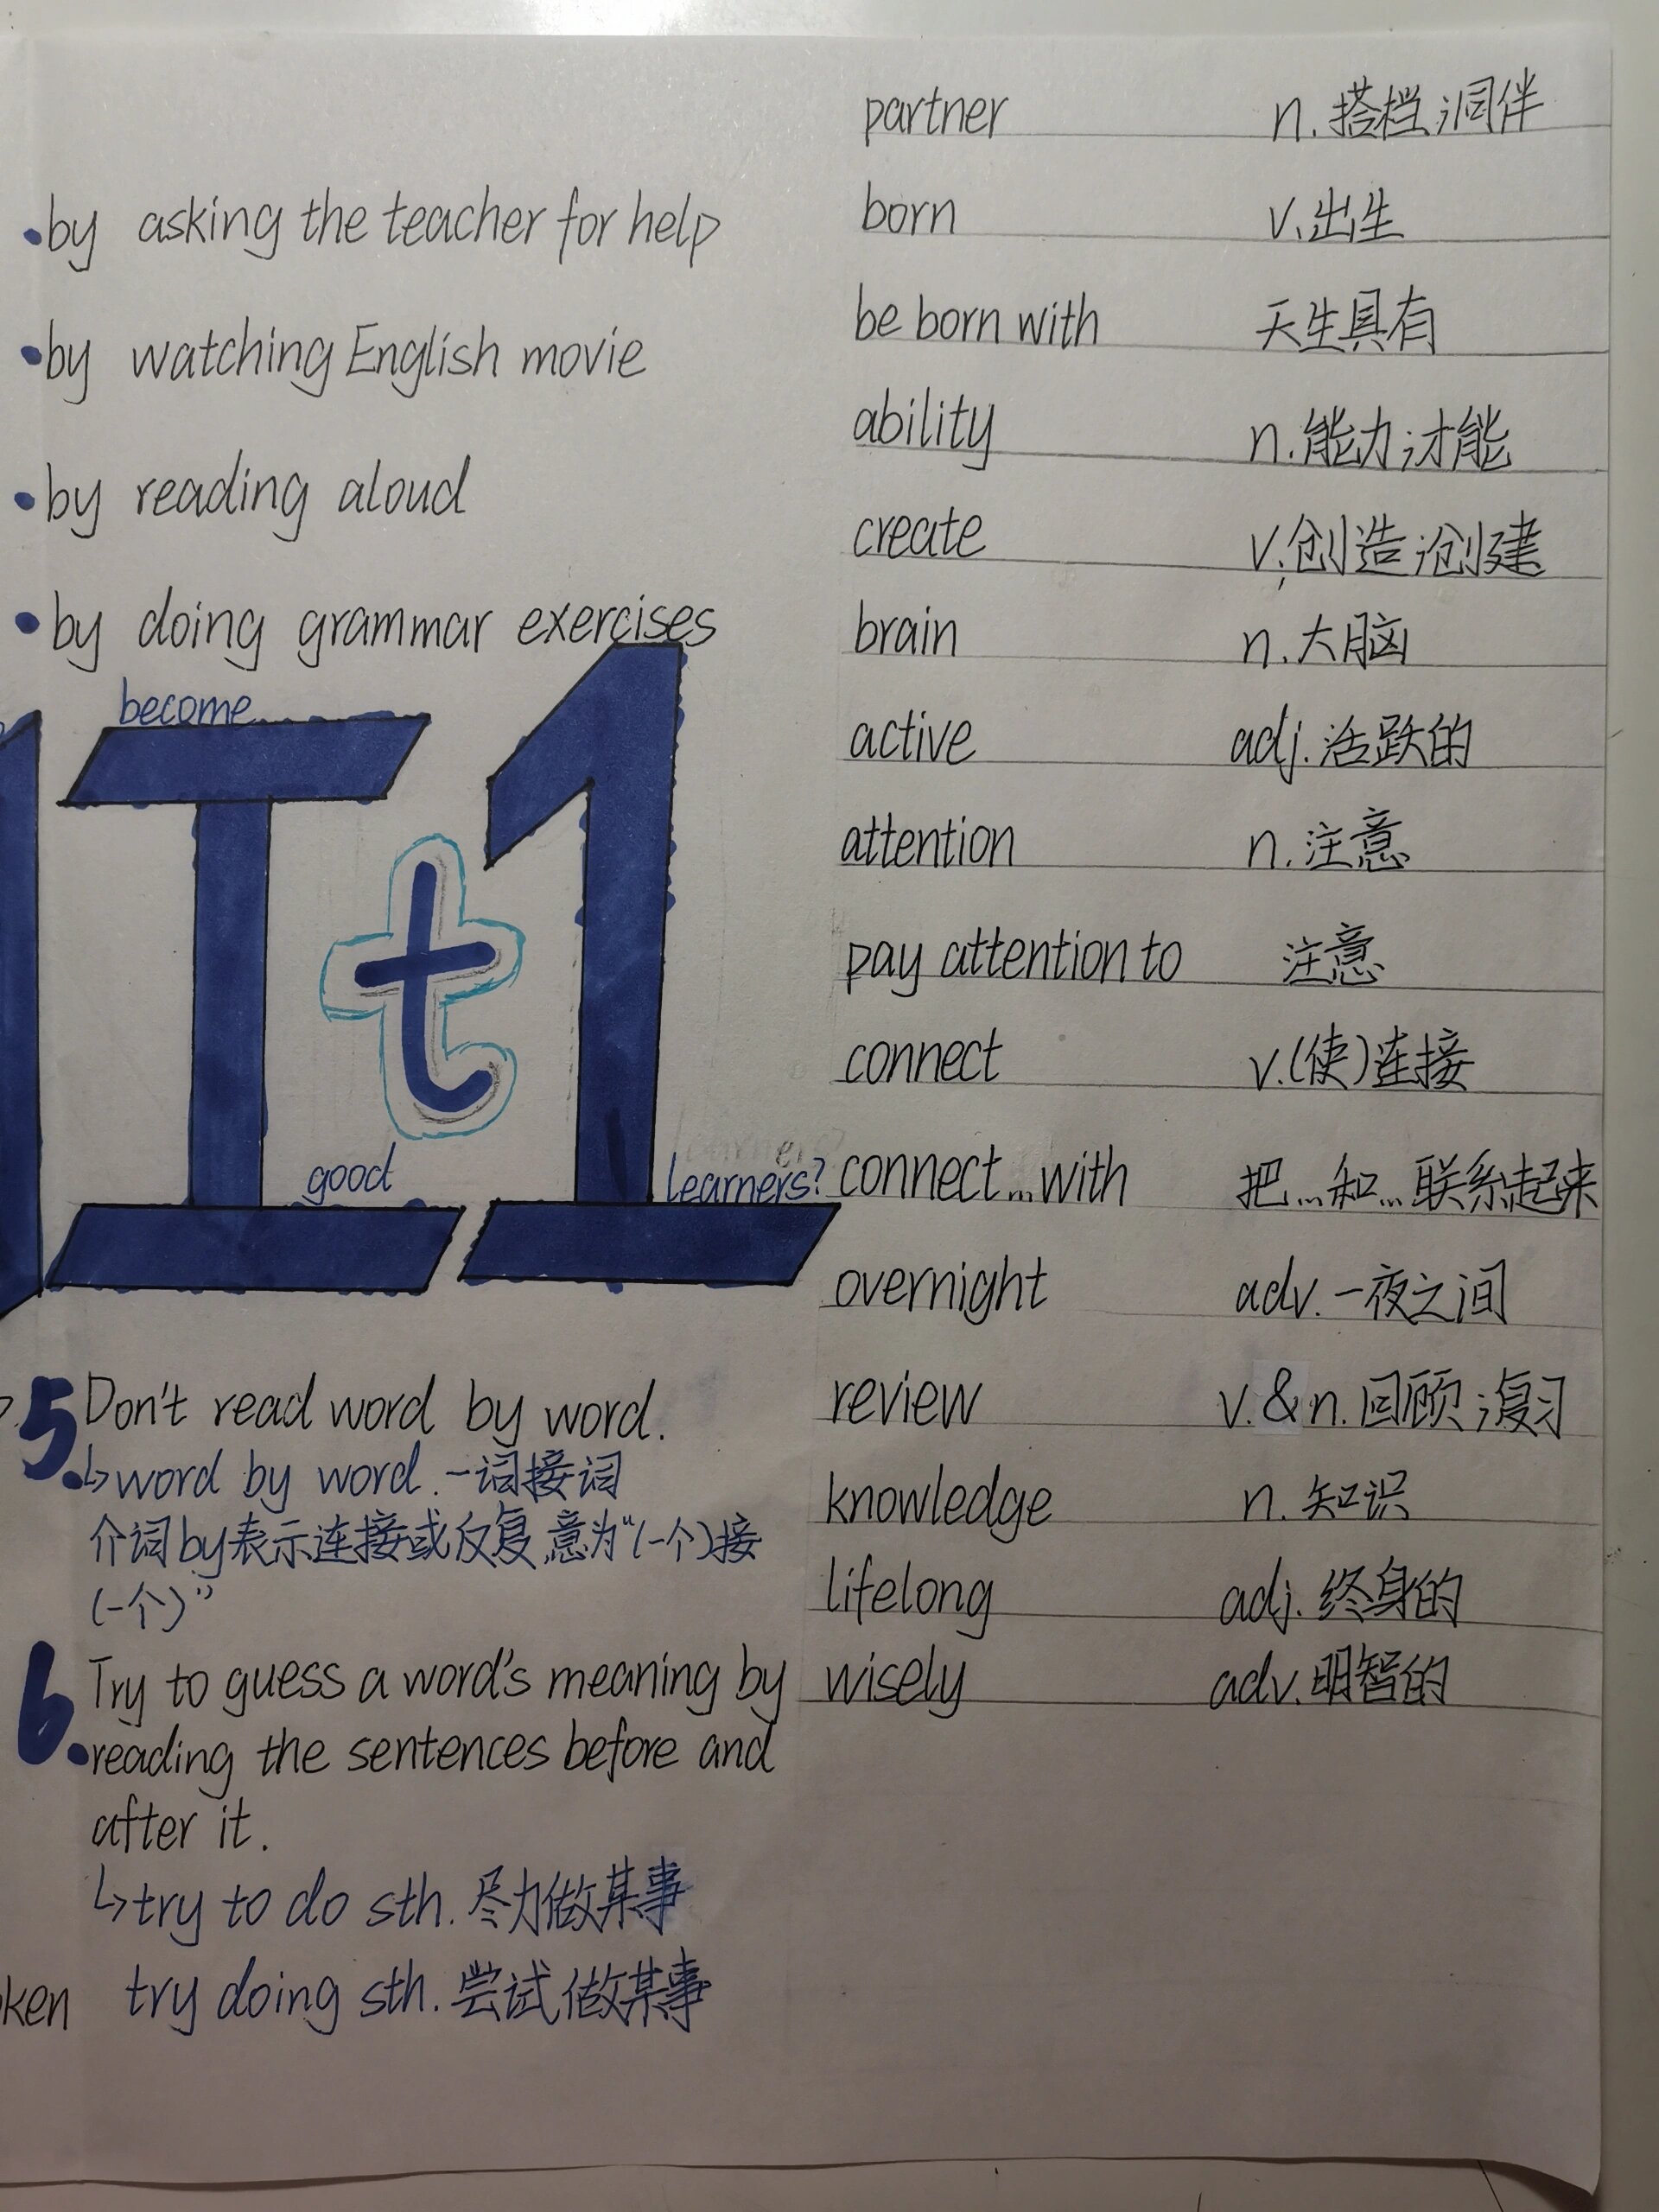 •by asking the teacher for help
•by watching English movie
•by reading aloud
•by doing grammar exercises
become
It1
good
learners?
5. Don't read word by word.
↳word by word. 一词接词
介词by表示连接或反复,意为"(一个)接
(一个)"
6. Try to guess a word's meaning by
reading the sentences before and
after it.
↳try to do sth. 尽力做某事
ken
try doing sth. 尝试做某事
partner n. 搭档;同伴
born v. 出生
be born with 天生具有
ability n. 能力;才能
create v. 创造;创建
brain n. 大脑
active adj. 活跃的
attention n. 注意
pay attention to 注意
connect v. (使)连接
connect...with 把...和...联系起来
overnight adv. 一夜之间
review v. & n. 回顾;复习
knowledge n. 知识
lifelong adj. 终身的
wisely adv. 明智的